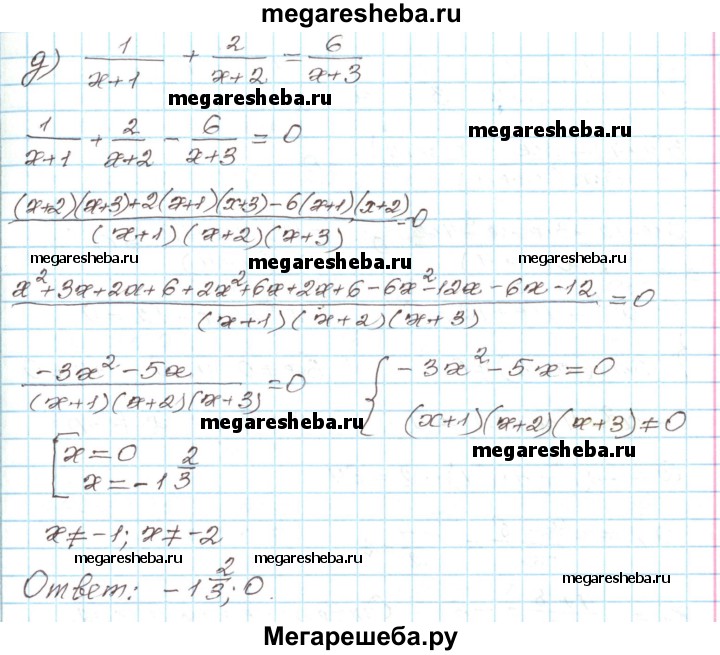 megaresheba.ru
д) 1/(x+1) + 2/(x+2) = 6/(x+3)
megaresheba.ru
1/(x+1) + 2/(x+2) − 6/(x+3) = 0
megaresheba.ru
((x+2)(x+3)+2(x+1)(x+3)−6(x+1)(x+2))/((x+1)(x+2)(x+3)) = 0
megaresheba.ru
megaresheba.ru
(x²+3x+2x+6+2x²+6x+2x+6−6x²−12x−6x−12)/((x+1)(x+2)(x+3)) = 0
(−3x²−5x)/((x+1)(x+2)(x+3)) = 0 { −3x²−5x=0
(x+1)(x+2)(x+3)≠0
megaresheba.ru
[ x=0
x=−1 2/3
megaresheba.ru
x≠−1; x≠−2
megaresheba.ru megaresheba.ru
Ответ: −1 2/3; 0.
megaresheba.ru
Мегарешеба.ру